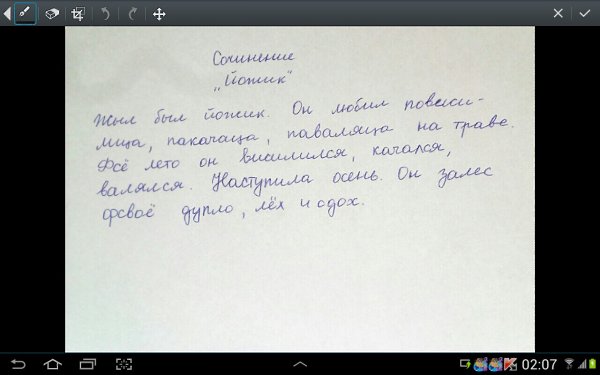 Сочинение
„Йожик"
Жыл был йожик. Он любил повеси-
лица, пакачаца, паваляца на траве.
Фсё лето он висилился, качался,
валялся. Наступила осень. Он залес
фсваё дупло, лёх и одох.
02:07